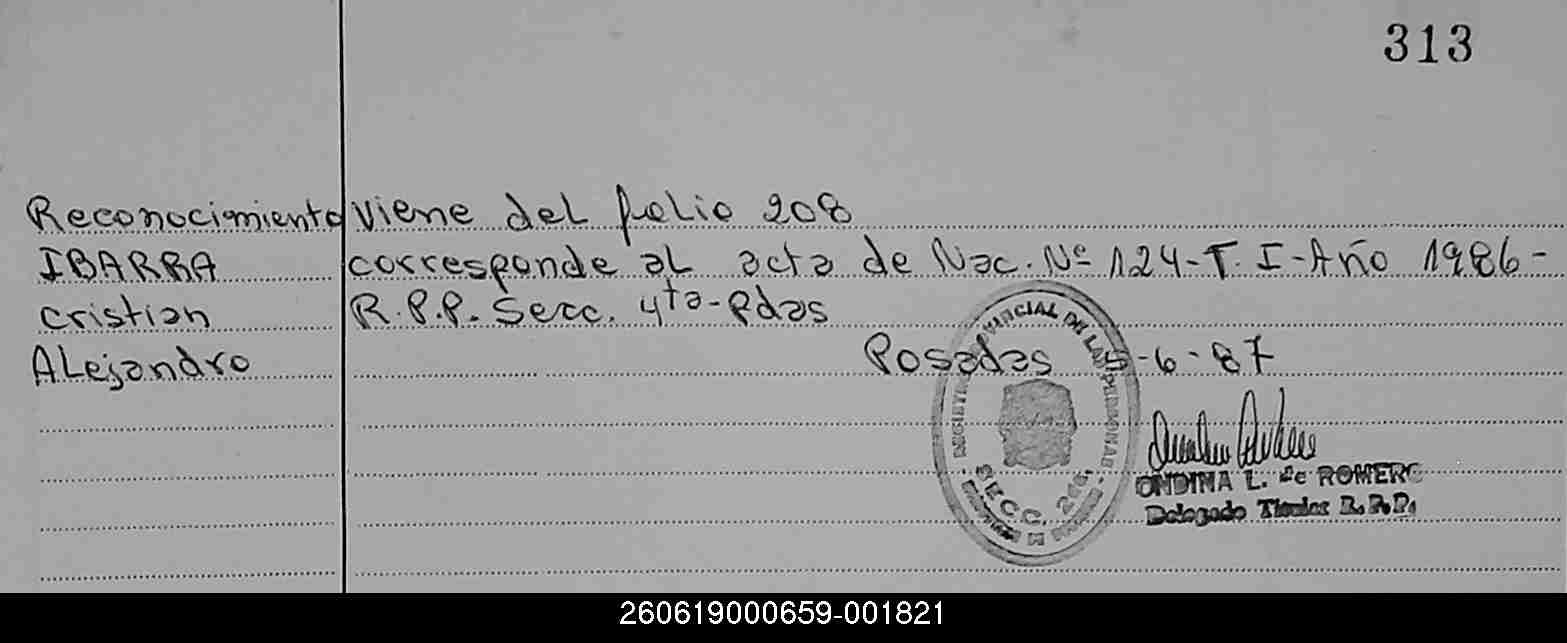 313
Reconocimiento viene del folio 208
IBARRA corresponde al acta de Nac. Nº 124-T. I-Año 1986-
Cristian R.P.P. Secc. 4ta-Pdas
Alejandro Posadas -6-87
REGISTRO PROVINCIAL DE LAS PERSONAS
SECC. 2da.
ONDINA L. de ROMERO
Delegado Titular R.P.P.
260619000659-001821